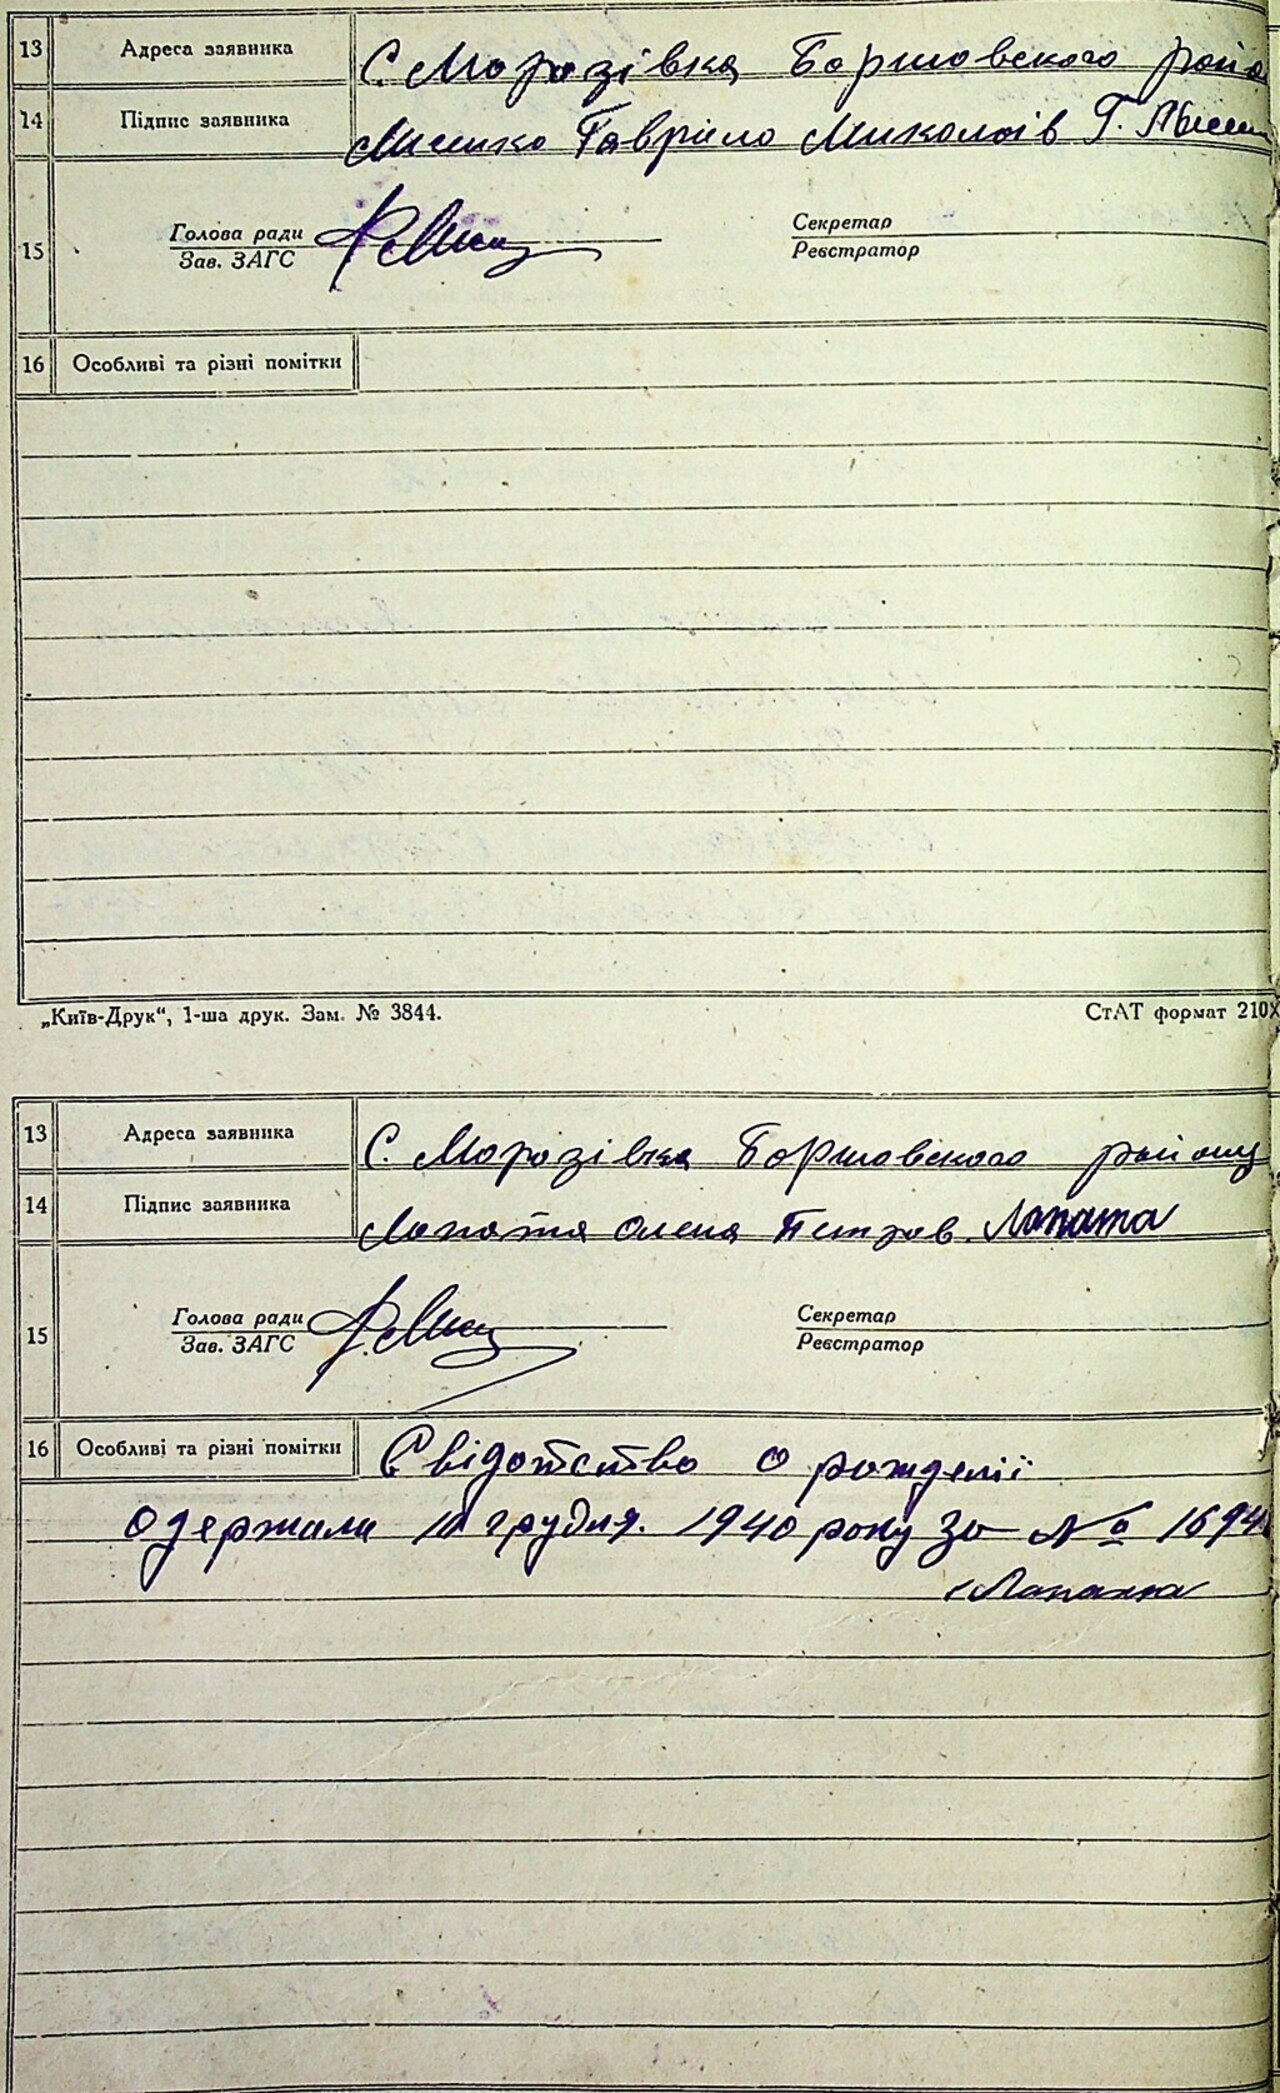 13 Адреса заявника С. Морозівка Баришовского райо
14 Підпис заявника Мисико Гавріло Миколаїв Г.
Голова ради Секретар
15 Зав. ЗАГС Реєстратор
16 Особливі та різні помітки
„Київ-Друк“, 1-ша друк. Зам. № 3844. СтАТ формат 210Х
13 Адреса заявника С. Морозівка Баришовского району
14 Підпис заявника Лопата Олена Петров. Лопата
Голова ради Секретар
15 Зав. ЗАГС Реєстратор
16 Особливі та різні помітки Свідотство о рожденії
одержали 10 грудня. 1940 року за № 1694
Лопата